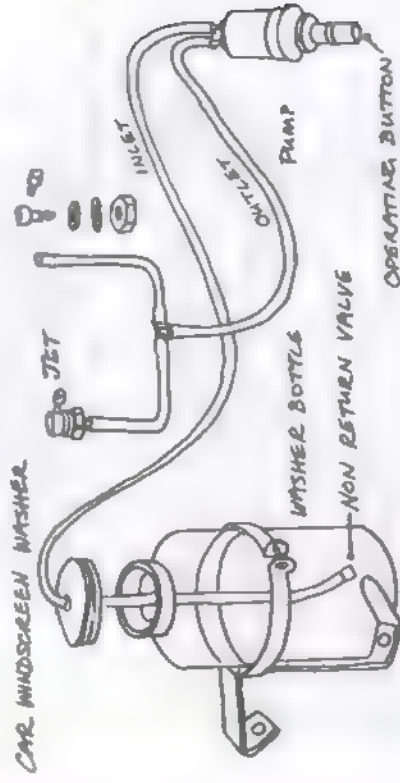 CAR WINDSCREEN WASHER
JET
INLET
OUTLET
PUMP
WASHER BOTTLE
NON RETURN VALVE
OPERATING BUTTON